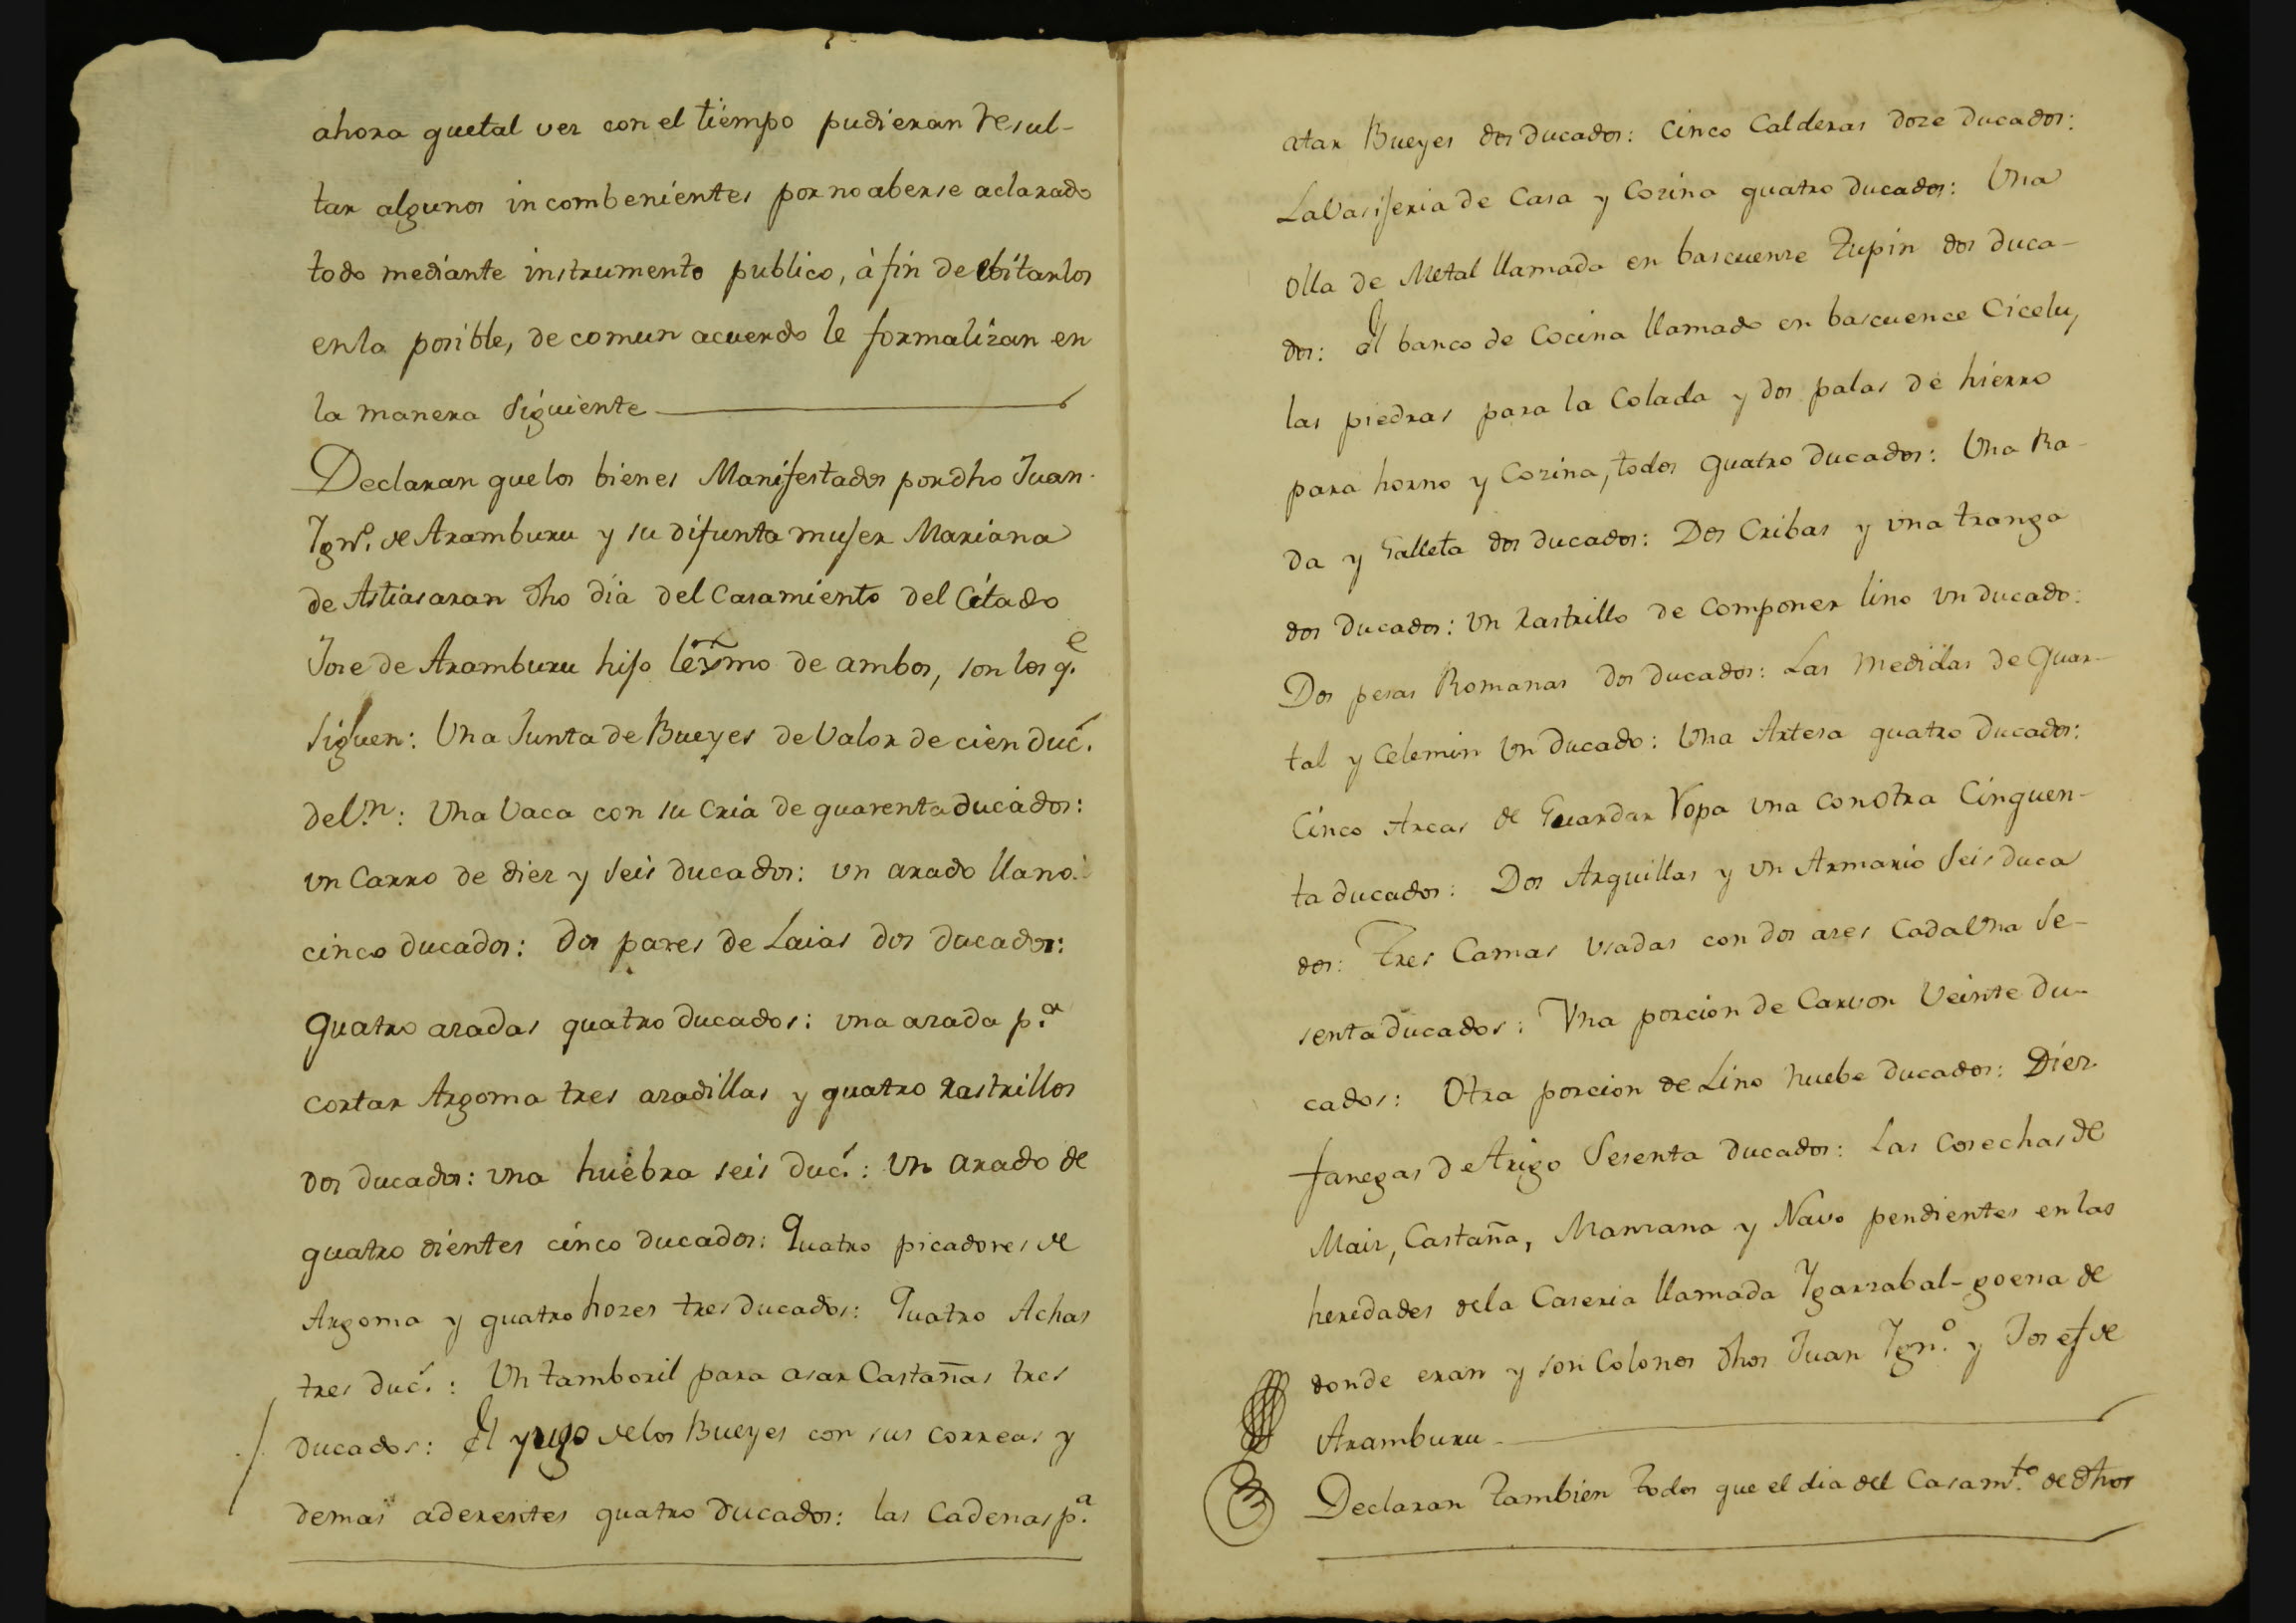 ahora que tal vez con el tiempo pudieran resul-
tar algunos incombenientes por no aberse aclarado
todo mediante instrumento publico, à fin de ebitarlos
en lo posible, de comun acuerdo le formalizan en
la manera siguiente
Declaran que los bienes Manifestados por dho Juan
Ygnº. de Aramburu y su difunta mujer Mariana
de Astiasaran dho dia del Casamiento del Citado
Jose de Aramburu hijo lexmo de ambos, son los q.e
siguen: Una Junta de Bueyes de Valor de cien duc.s
de V.n: Una Vaca con su cria de quarenta ducados:
un Carro de diez y seis ducados: un arado llano
cinco ducados: Dos pares de Laias dos ducados:
Quatro azadas quatro ducados: una azada p.a
cortar Argoma tres azadillas y quatro rastrillos
dos ducados: una huebra seis duc.s: Un arado de
quatro dientes cinco ducados: Quatro picadores de
Argoma y quatro hozes tres ducados: Quatro Achas
tres duc.s: Un tamboril para asar Castañas tres
ducados: El yugo de los Bueyes con sus correas y
demas aderentes quatro ducados: las Cadenas p.a
atar Bueyes dos ducados: Cinco Calderas doze ducados:
La Vasijeria de Casa y Cozina quatro ducados: Una
Olla de Metal llamada en bascuenze Tupin dos duca-
dos: El banco de Cocina llamado en bascuence Cicelu,
las piedras para la Colada y dos palas de hierro
para horno y Cozina, todos quatro ducados: Una Ra-
da y Galleta dos ducados: Dos Cribas y una tranga
dos ducados: Un rastrillo de componer lino un ducado:
Dos pesas Romanas dos ducados: Las medidas de Quar-
tal y Celemin un ducado: Una Artesa quatro ducados:
Cinco Arcas de Guardar Ropa una con otra Cinquen-
ta ducados: Dos Arquillas y un Armario seis duca
dos: Tres Camas usadas con dos azes cada Una se-
senta ducados: Una porcion de Carvon Veinte du-
cados: Otra porcion de Lino nuebe ducados: Diez
fanegas de trigo sesenta ducados: Las Cosechas de
Maiz, Castaña, Manzana y Navo pendientes en las
heredades de la Caseria llamada Ygarzabal-goena de
donde eran y son Colonos dhos Juan Ygn.º y Josef de
Aramburu
Declaran tambien todos que el dia del Casam.to de dhos